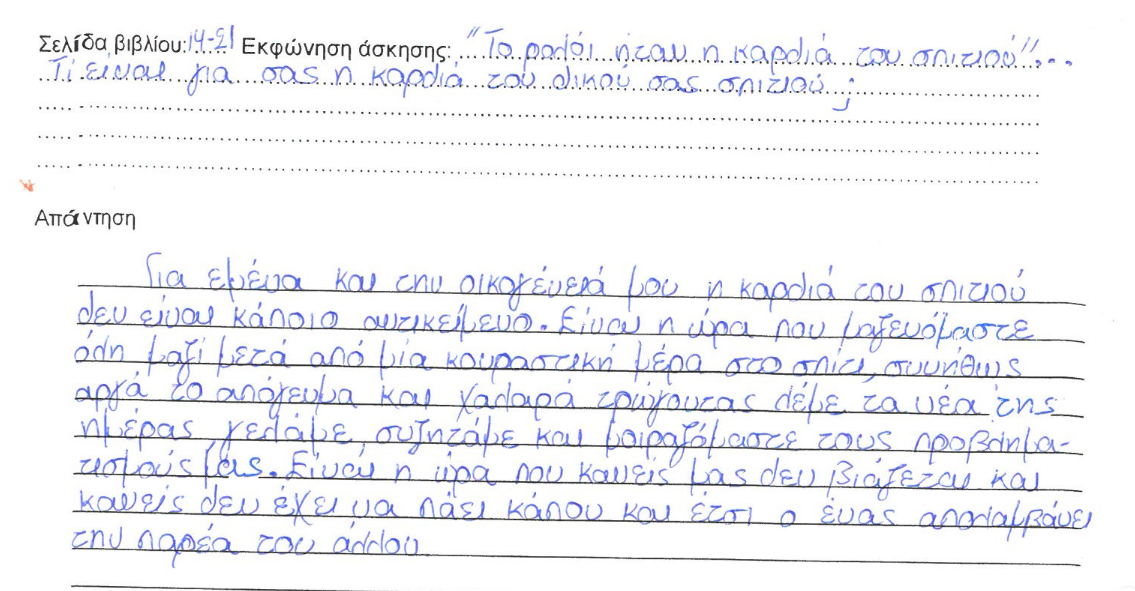 Σελίδα βιβλίου: 14-21 Εκφώνηση άσκησης: "Το ρολόι ήταν η καρδιά του σπιτιού"...
Τί είναι για σας η καρδιά του δικού σας σπιτιού ;
Απάντηση
Για εμένα και την οικογένειά μου η καρδιά του σπιτιού
δεν είναι κάποιο αντικείμενο. Είναι η ώρα που μαζευόμαστε
όλη μαζί μετά από μία κουραστική μέρα στο σπίτι, συνήθως
αργά το απόγευμα και χαλαρά τρώγοντας λέμε τα νέα της
ημέρας, γελάμε, συζητάμε και μοιραζόμαστε τους προβλημα-
τισμούς μας. Είναι η ώρα που κανείς μας δεν βιάζεται και
κανείς δεν έχει να πάει κάπου και έτσι ο ένας απολαμβάνει
την παρέα του άλλου.